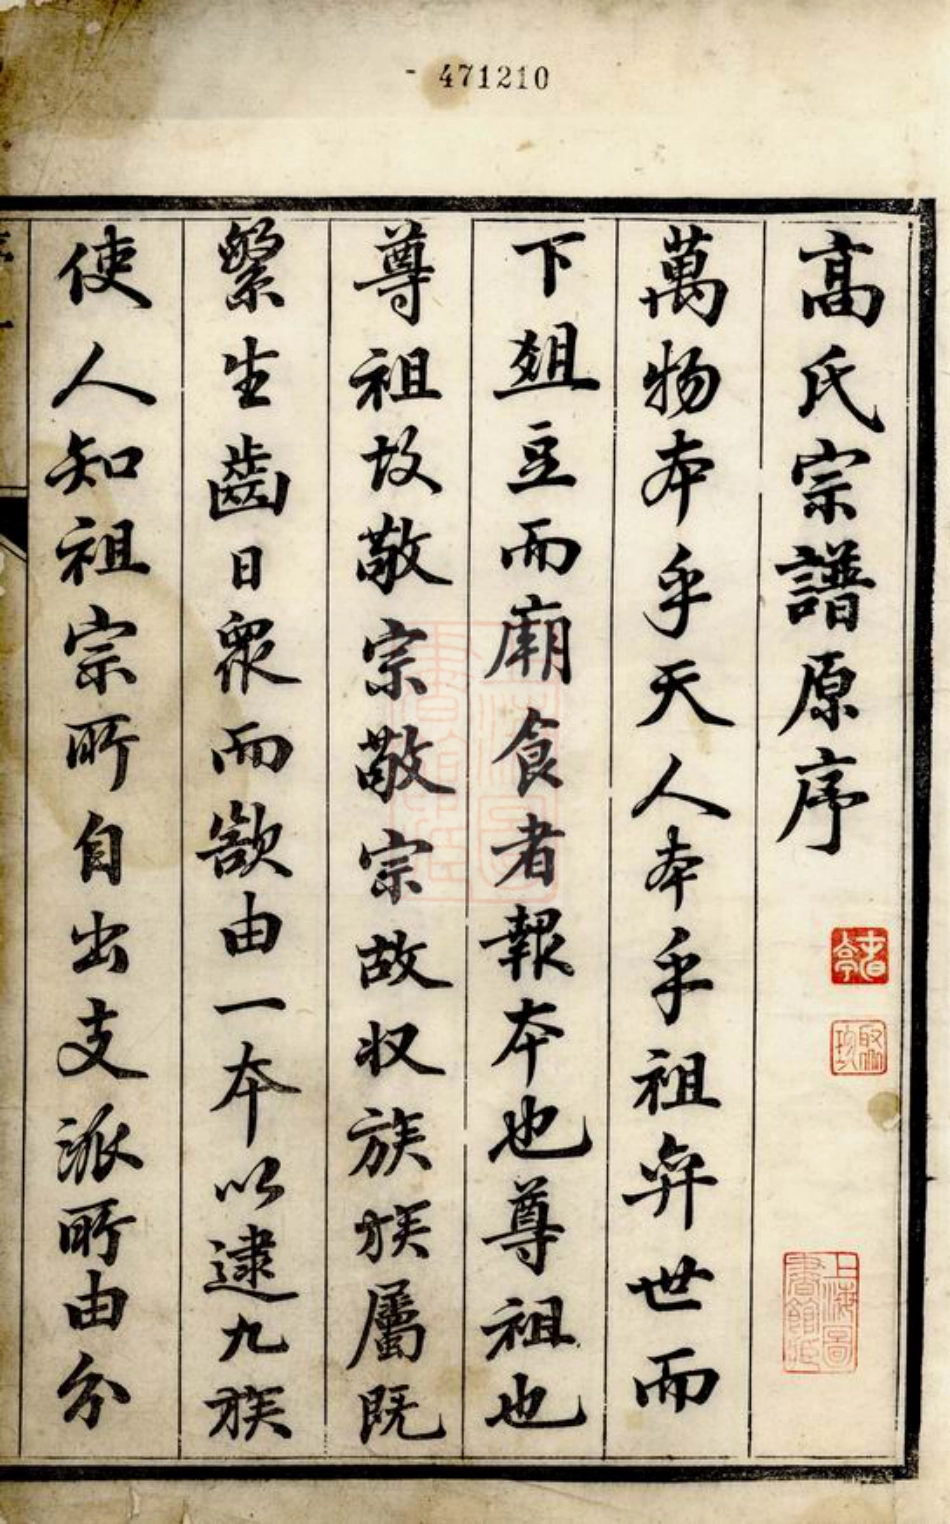 471210
高氏宗譜原序
萬物本乎天人本乎祖弈世而
下俎豆而廟食者報本也尊祖也
尊祖故敬宗敬宗故収族族屬既
繁生齒日衆而欲由一本以逮九族
使人知祖宗所自出支派所由分
上海圖書館藏